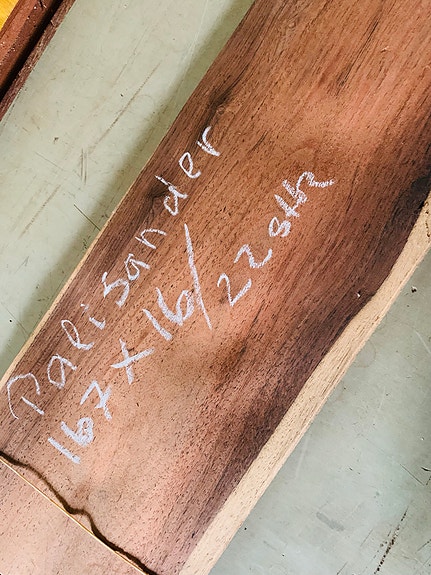 Palisander
167 x 16/22 stk